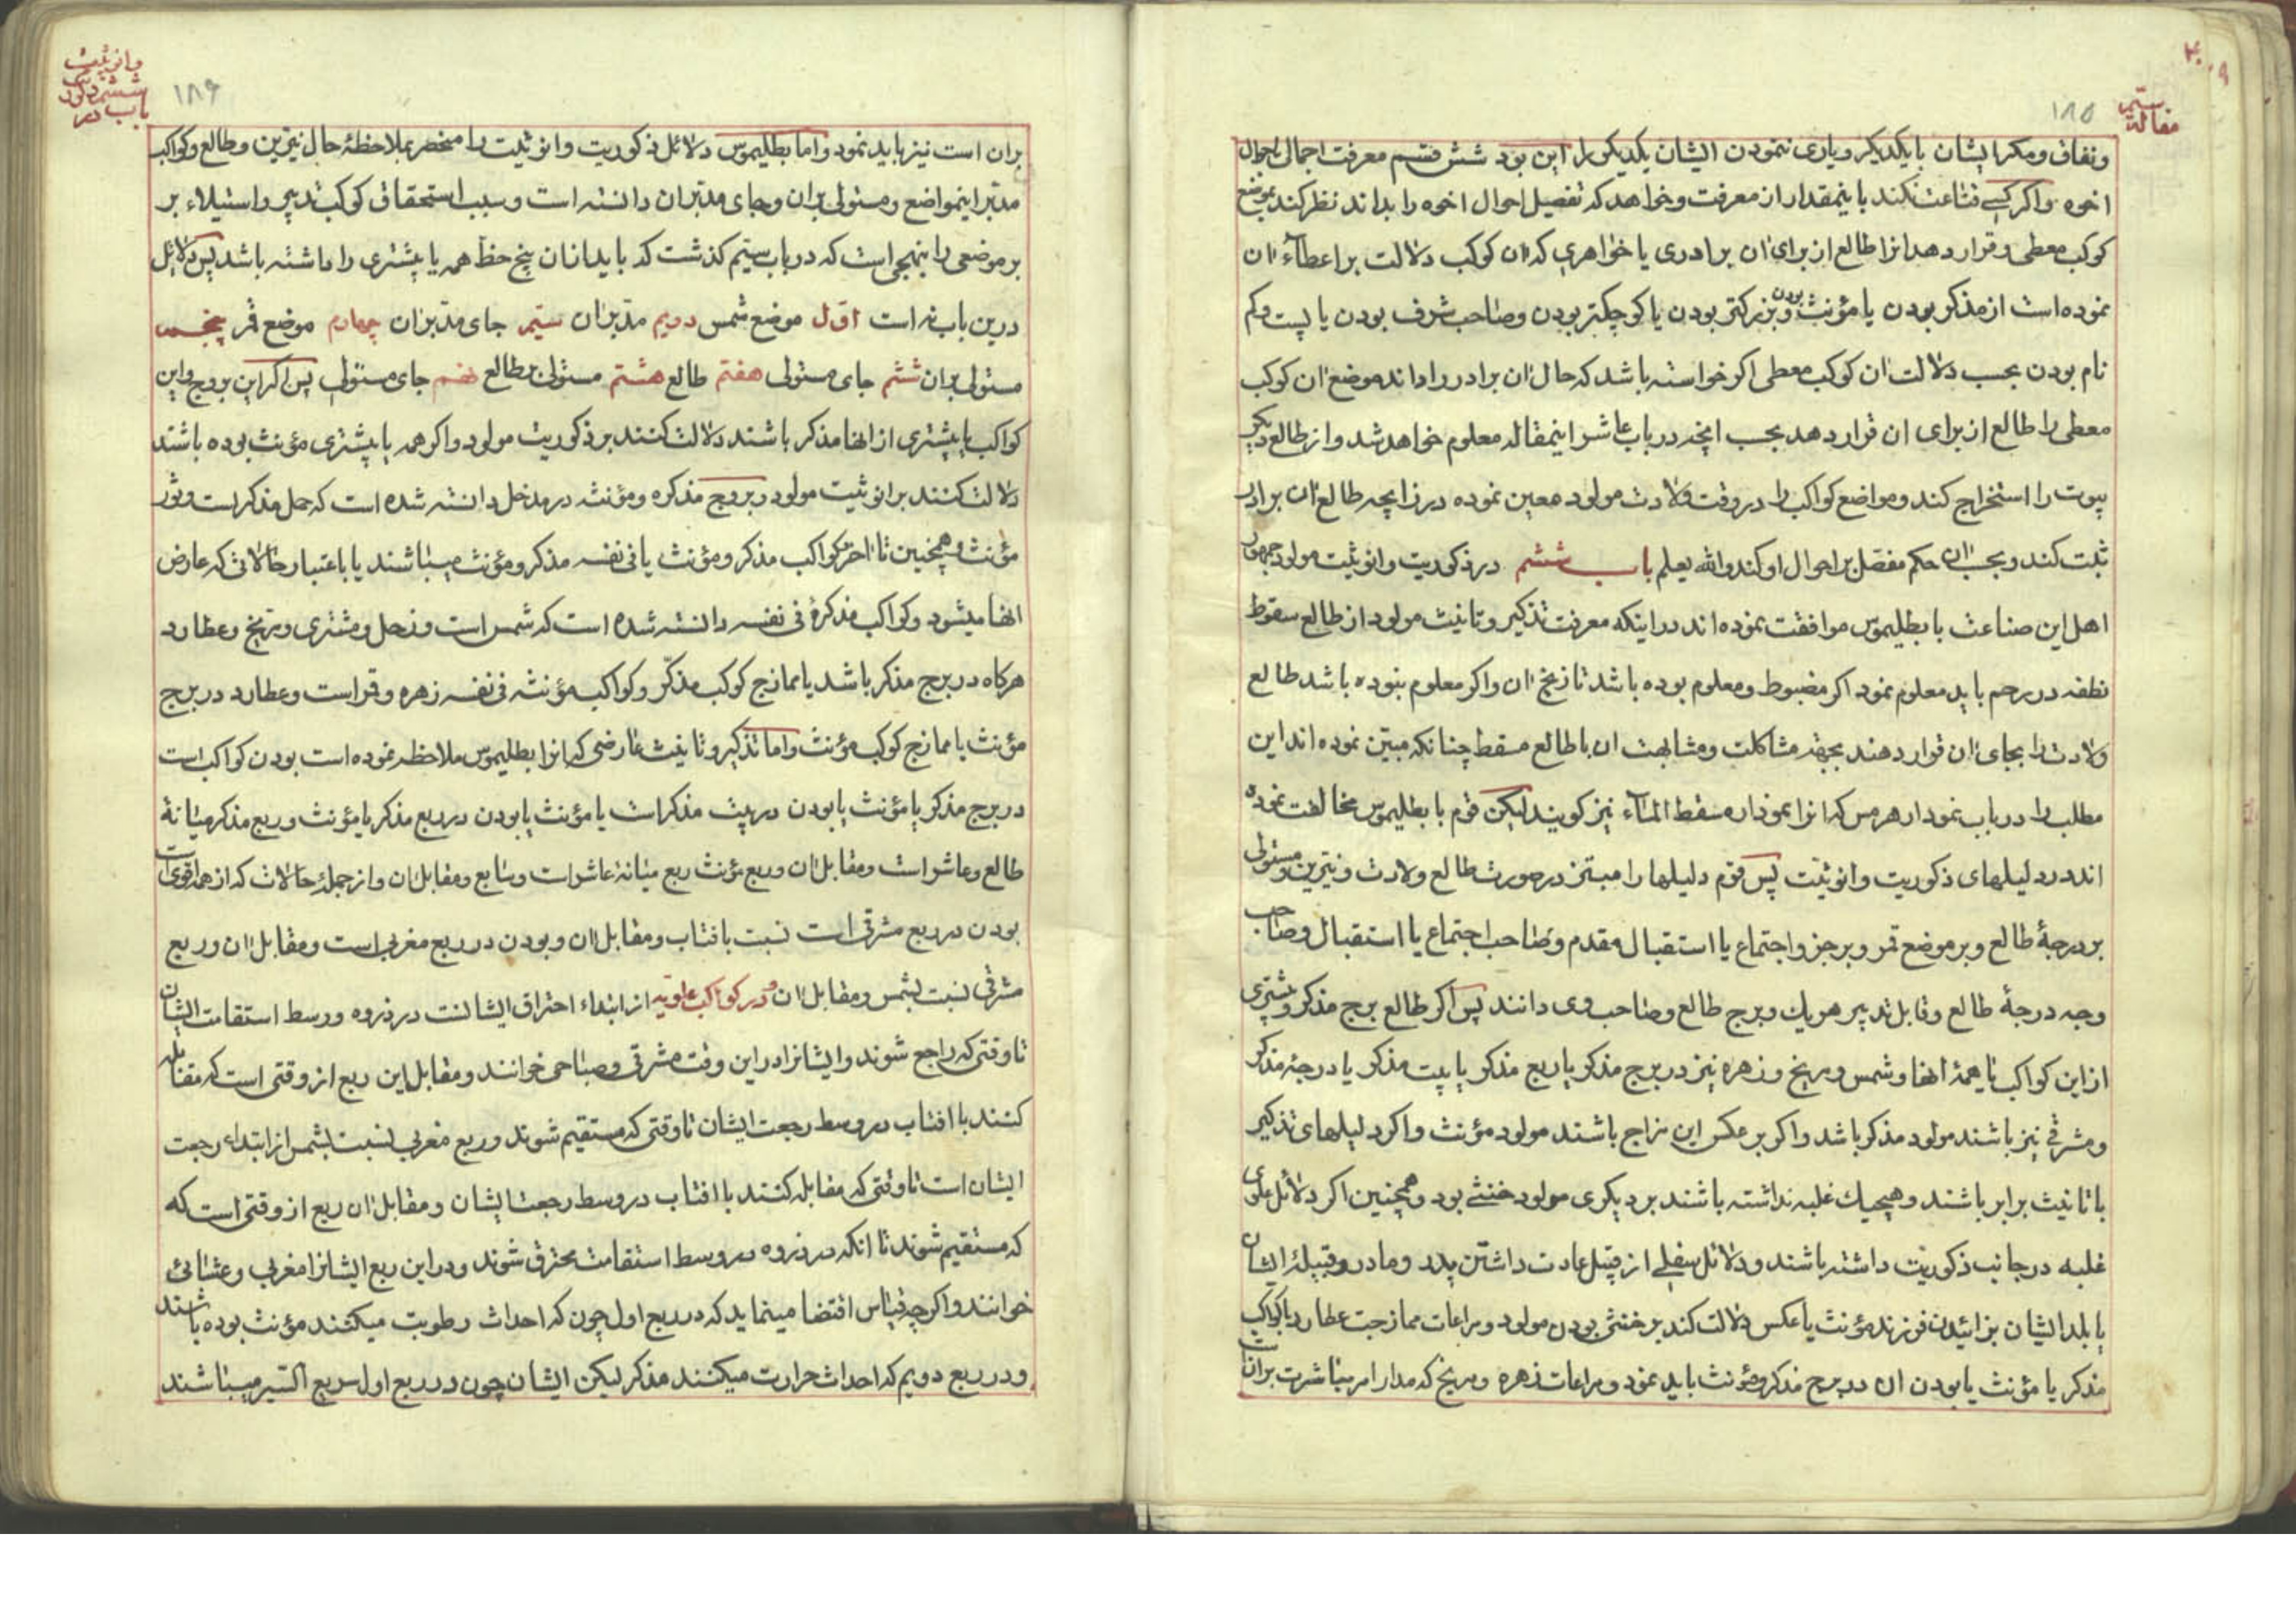 مقالهٔ سیم
۱۸۵
ونفاق ومکر ایشان با یکدیگر ویاری ننمودن ایشان یکدیگر را این بود شش قسم معرفت اجمال احوال
اخوه واکر کسی قناعت نکند باینمقدار از معرفت وخواهد که تفصیل احوال اخوه را بداند نظر کند بموضع
کوکب معطی وقرار دهد انرا طالع از برای ان برادری یا خواهری که ان کوکب دلالت بر اعطاء ان
نموده است از مذکر بودن یا مؤنث بودن وبزرکتر بودن یا کوچکتر بودن وصاحب شرف بودن یا پست وکم
نام بودن بحسب دلالت ان کوکب معطی اکر خواسته باشد که حال ان برادر را داند موضع ان کوکب
معطی را طالع از برای ان قرار دهد بحسب انچه در باب عاشر اینمقاله معلوم خواهد شد واز طالع دیکر
بیوت را استخراج کند ومواضع کواکب را در وقت ولادت مولود معین نموده در زایچه طالع ان برادر
ثبت کند وبحسب ان حکم مفصل بر احوال او کند والله یعلم باب ششم در ذکوریت وانوثیت مولود جمهور
اهل این صناعت با بطلیموس موافقت نموده اند در اینکه معرفت تذکیر وتانیث مولود از طالع سقوط
نطفه در رحم باید معلوم نمود اکر مضبوط ومعلوم بوده باشد تاریخ ان واکر معلوم نبوده باشد طالع
ولادت را بجای ان قرار دهند بجهة مشاکلت ومشابهت ان با طالع مسقط چنانکه مبین نموده اند این
مطلب را در باب نمودار هرمس که انرا نمودار مسقط الماء نیز کویند لیکن قوم با بطلیموس مخالفت نموده
اند در دلیلهای ذکوریت وانوثیت پس قوم دلیلها را مبتز در صورت طالع ولادت ونیرین ومستولی
بر درجهٔ طالع وبر موضع قمر وبر جزو اجتماع یا استقبال مقدم وصاحب اجتماع یا استقبال وصاحب
وجه درجهٔ طالع وقابل تدبیر هریک وبرج طالع وصاحب وی دانند پس اکر طالع برج مذکر وبیشتری
از این کواکب یا همهٔ انها وشمس ومریخ وزهره نیز در برج مذکر یا ربع مذکر یا بیت مذکر یا درجهٔ مذکر
ومشرقی نیز باشند مولود مذکر باشد واکر بر عکس این مزاج باشند مولود مؤنث واکر دلیلهای تذکیر
با تانیث برابر باشند وهیچیک غلبه نداشته باشند بر دیکری مولود خنثی بود وهمچنین اکر دلائل علوی
غلبه در جانب ذکوریت داشته باشند ودلائل سفلی از قبیل عادت داشتن پدر ومادر وقبیلهٔ ایشان
یا بلد ایشان بزائیدن فرزند مؤنث یا عکس دلالت کند بر خنثی بودن مولود ومراعات ممازجت عطارد با کواکب
مذکر یا مؤنث یا بودن ان در برج مذکر ومؤنث باید نمود ومراعات زهره ومریخ که مدار امر مباشرت بر انها
وانوثیت
ششم در ذکورت
باب در
۱۸۶
بران است نیز باید نمود واما بطلیموس دلائل ذکوریت وانوثیت را منحصر بملاحظهٔ حال نیرین وطالع وکواکب
مدبر اینمواضع ومستولی بران وجای مدبران دانسته است وسبب استحقاق کوکب تدبیر واستیلاء بر
بر موضعی را بنهجی است که در باب سیم کذشت که باید از ان پنج حظ همه یا بیشتری را داشته باشد پس دلائل
درین باب نه است اول موضع شمس دویم مدبر ان سیم جای مدبر ان چهارم موضع قمر پنجم
مستولی بران ششم جای مستولی هفتم طالع هشتم مستولی بر طالع نهم جای مستولی پس اکر این بروج واین
کواکب یا بیشتری از انها مذکر باشند دلالت کنند بر ذکوریت مولود واکر همه یا بیشتری مؤنث بوده باشند
دلالت کنند بر انوثیت مولود وبروج مذکره ومؤنثه در مدخل دانسته شده است که حمل مذکر است وثور
مؤنث وهمچنین تا اخر وکواکب مذکر ومؤنث یا فی نفسه مذکر ومؤنث میباشند یا باعتبار حالاتی که عارض
انها میشود وکواکب مذکرهٔ فی نفسه دانسته شده است که شمس است وزحل ومشتری ومریخ وعطارد
هرکاه در برج مذکر باشد یا ممازج کوکب مذکر وکواکب مؤنثه فی نفسه زهره وقمر است وعطارد در برج
مؤنث یا ممازج کوکب مؤنث واما تذکیر وتانیث عارضی که انرا بطلیموس ملاحظه نموده است بودن کواکب است
در برج مذکر یا مؤنث یا بودن در بیت مذکر است یا مؤنث یا بودن در ربع مذکر یا مؤنث وربع مذکر میانهٔ
طالع وعاشر است ومقابل ان وربع مؤنث ربع میانهٔ عاشر است وسابع ومقابل ان واز جملهٔ حالات که از همه اقوی است
بودن در ربع مشرقی است نسبت بافتاب ومقابل ان وبودن در ربع مغربی است ومقابل ان وربع
مشرقی نسبت بشمس ومقابل ان ودر کواکب علویه از ابتداء احتراق ایشانست در ذروه ووسط استقامت ایشان
تا وقتی که راجع شوند وایشانرا در این وقت مشرقی وصباحی خوانند ومقابل این ربع از وقتی است که مقابله
کنند با افتاب در وسط رجعت ایشان تا وقتی که مستقیم شوند وربع مغربی نسبت بشمس از ابتداء رجعت
ایشان است تا وقتی که مقابله کنند با افتاب در وسط رجعت ایشان ومقابل ان ربع از وقتی است که
که مستقیم شوند تا انکه در ذروه در وسط استقامت محترق شوند ودر این ربع ایشانرا مغربی وعشائی
خوانند واکرچه قیاس اقتضا مینماید که در ربع اول چون که احداث رطوبت میکنند مؤنث بوده باشند
ودر ربع دویم که احداث حرارت میکنند مذکر لیکن ایشان چون در ربع اول سریع السیر میباشند